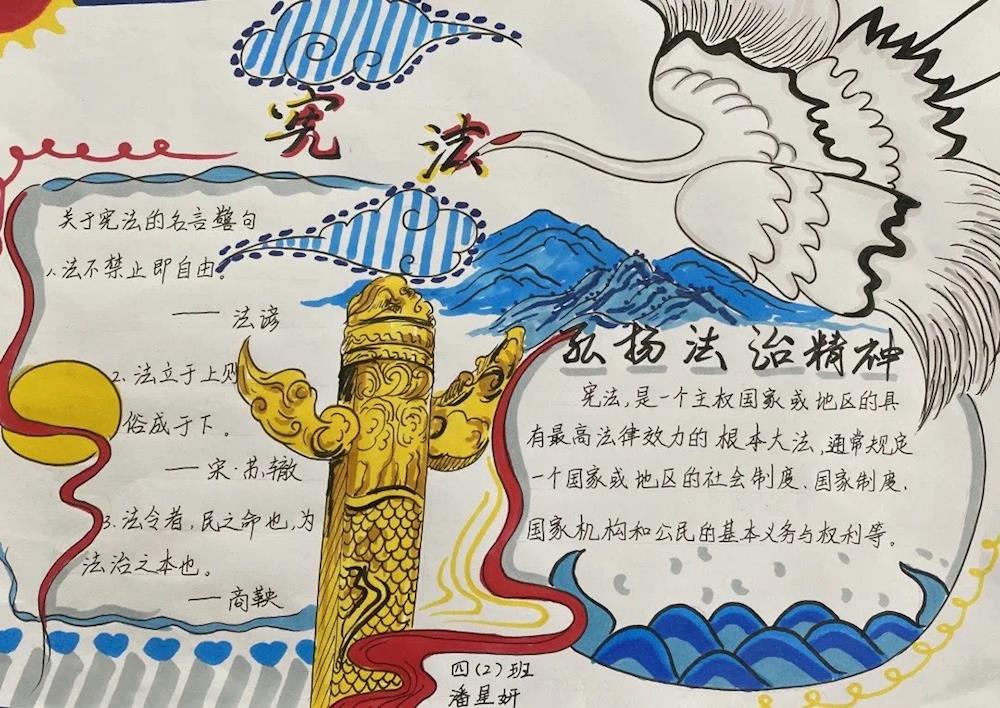 宪法
关于宪法的名言警句
1.法不禁止即自由。
——法谚
2.法立于上则
俗成于下。
——宋·苏辙
3.法令者,民之命也,为
法治之本也。
——商鞅
弘扬法治精神
宪法,是一个主权国家或地区的具
有最高法律效力的根本大法,通常规定
一个国家或地区的社会制度、国家制度、
国家机构和公民的基本义务与权利等。
四(2)班
潘星妍